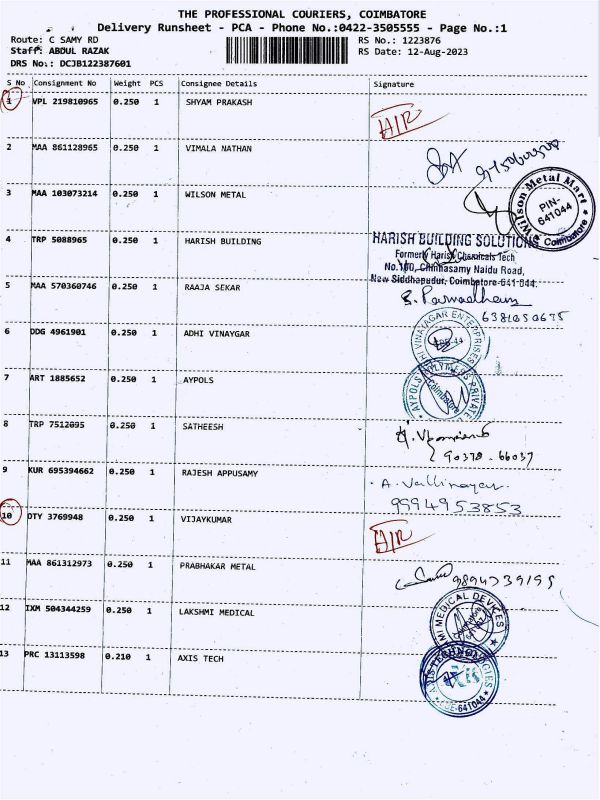 THE PROFESSIONAL COURIERS, COIMBATORE
Delivery Runsheet - PCA - Phone No.:0422-3505555 - Page No.:1
Route: C SAMY RD
RS No.: 1223876
Staff: ABDUL RAZAK
RS Date: 12-Aug-2023
DRS No.: DCJB122387601
S No Consignment No Weight PCS Consignee Details Signature
1 VPL 219810965 0.250 1 SHYAM PRAKASH
2 MAA 861128965 0.250 1 VIMALA NATHAN
3 MAA 103073214 0.250 1 WILSON METAL
Wilson Metal Mart
PIN-
641044
Coimbatore
4 TRP 5088965 0.250 1 HARISH BUILDING
HARISH BUILDING SOLUTIONS
Formerly Harish Chemicals Tech
No.100, Chinnasamy Naidu Road,
New Siddhapudur, Coimbatore-641 044.
5 MAA 570360746 0.250 1 RAAJA SEKAR
6 DDG 4961901 0.250 1 ADHI VINAYGAR
VINAYAGAR ENTERPRISES
7 ART 1885652 0.250 1 AYPOLS
AYPOLS POLYMERS PRIVATE
Coimbatore
8 TRP 7512095 0.250 1 SATHEESH
90378-66037
9 KUR 695394662 0.250 1 RAJESH APPUSAMY
A. Vallinayagar
9994953853
10 DTY 3769948 0.250 1 VIJAYKUMAR
11 MAA 861312973 0.250 1 PRABHAKAR METAL
12 IXM 504344259 0.250 1 LAKSHMI MEDICAL
MEDICAL DEVICES
13 PRC 13113598 0.210 1 AXIS TECH
AXIS TECHNOLOGIES
AXIS
CBE-641044